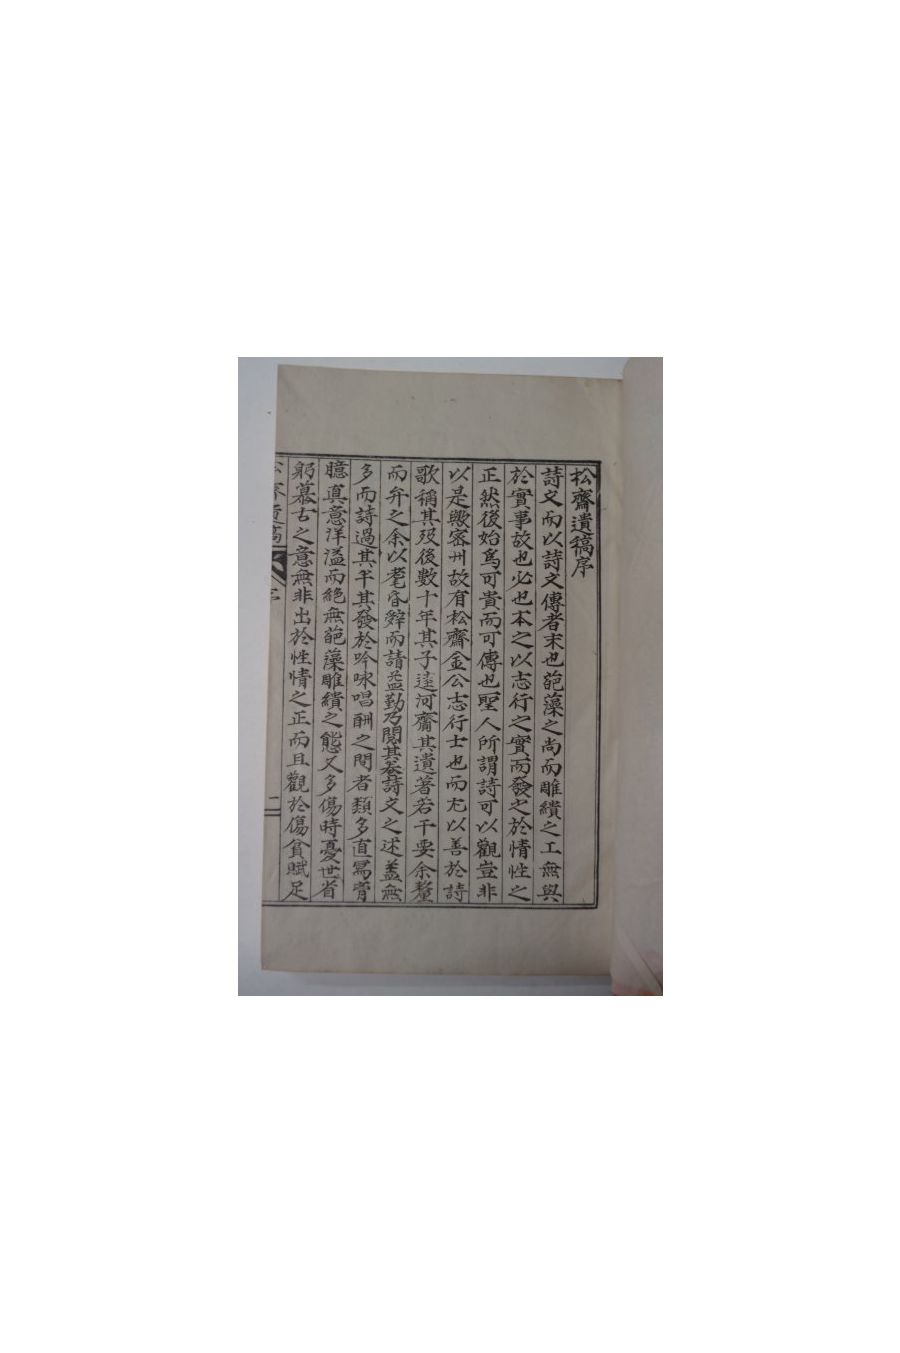 松齋遺稿序
詩文而以詩文傳者末也葩藻之尚而雕繢之工無與
於實事故也必也本之以志行之實而發之於情性之
正然後始爲可貴而可傳也聖人所謂詩可以觀豈非
以是歟密州故有松齋金公志行士也而尤以善於詩
歌稱其歿後數十年其子遠河齎其遺著若干要余釐
而弁之余以耄昏辭而請益勤乃閱其卷詩文之述蓋無
多而詩過其半其發於吟咏唱酬之間者類多直寫胷
臆眞意洋溢而絶無葩藻雕繢之態又多傷時憂世省
躬慕古之意無非出於性情之正而且觀於傷貧賦足
松齋遺稿 序 一